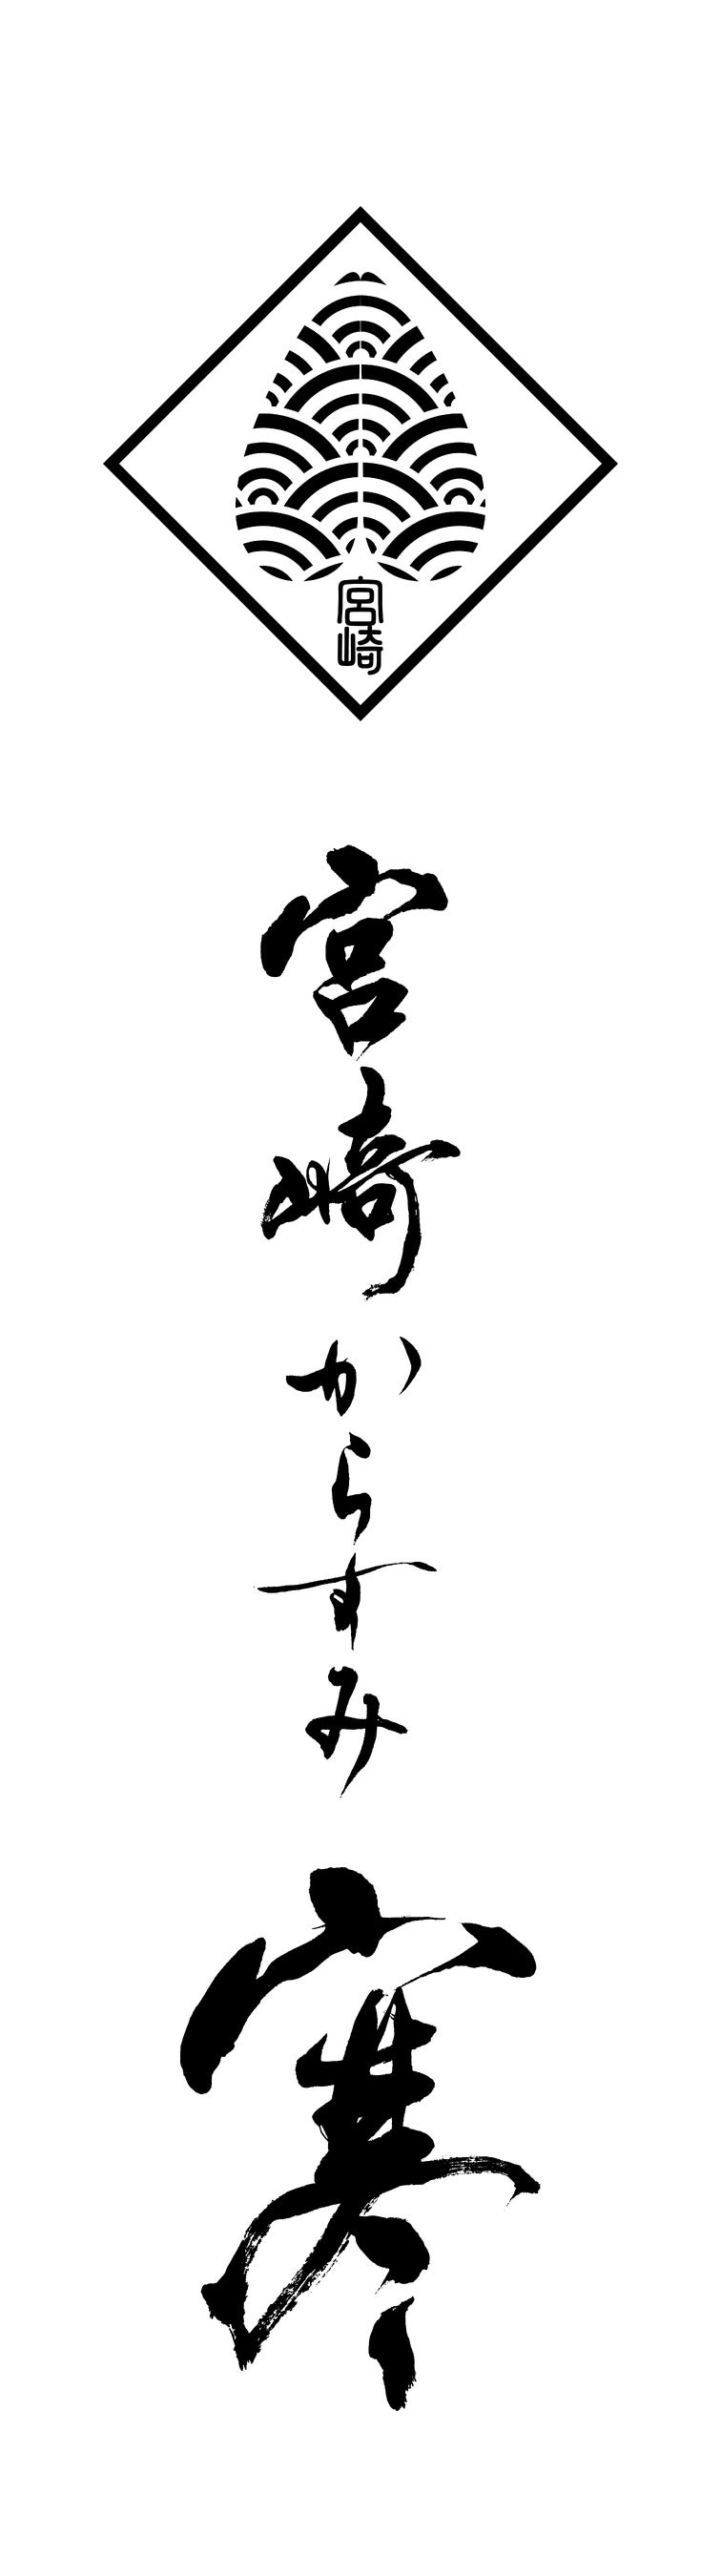 宮崎
宮崎からすみ
寒